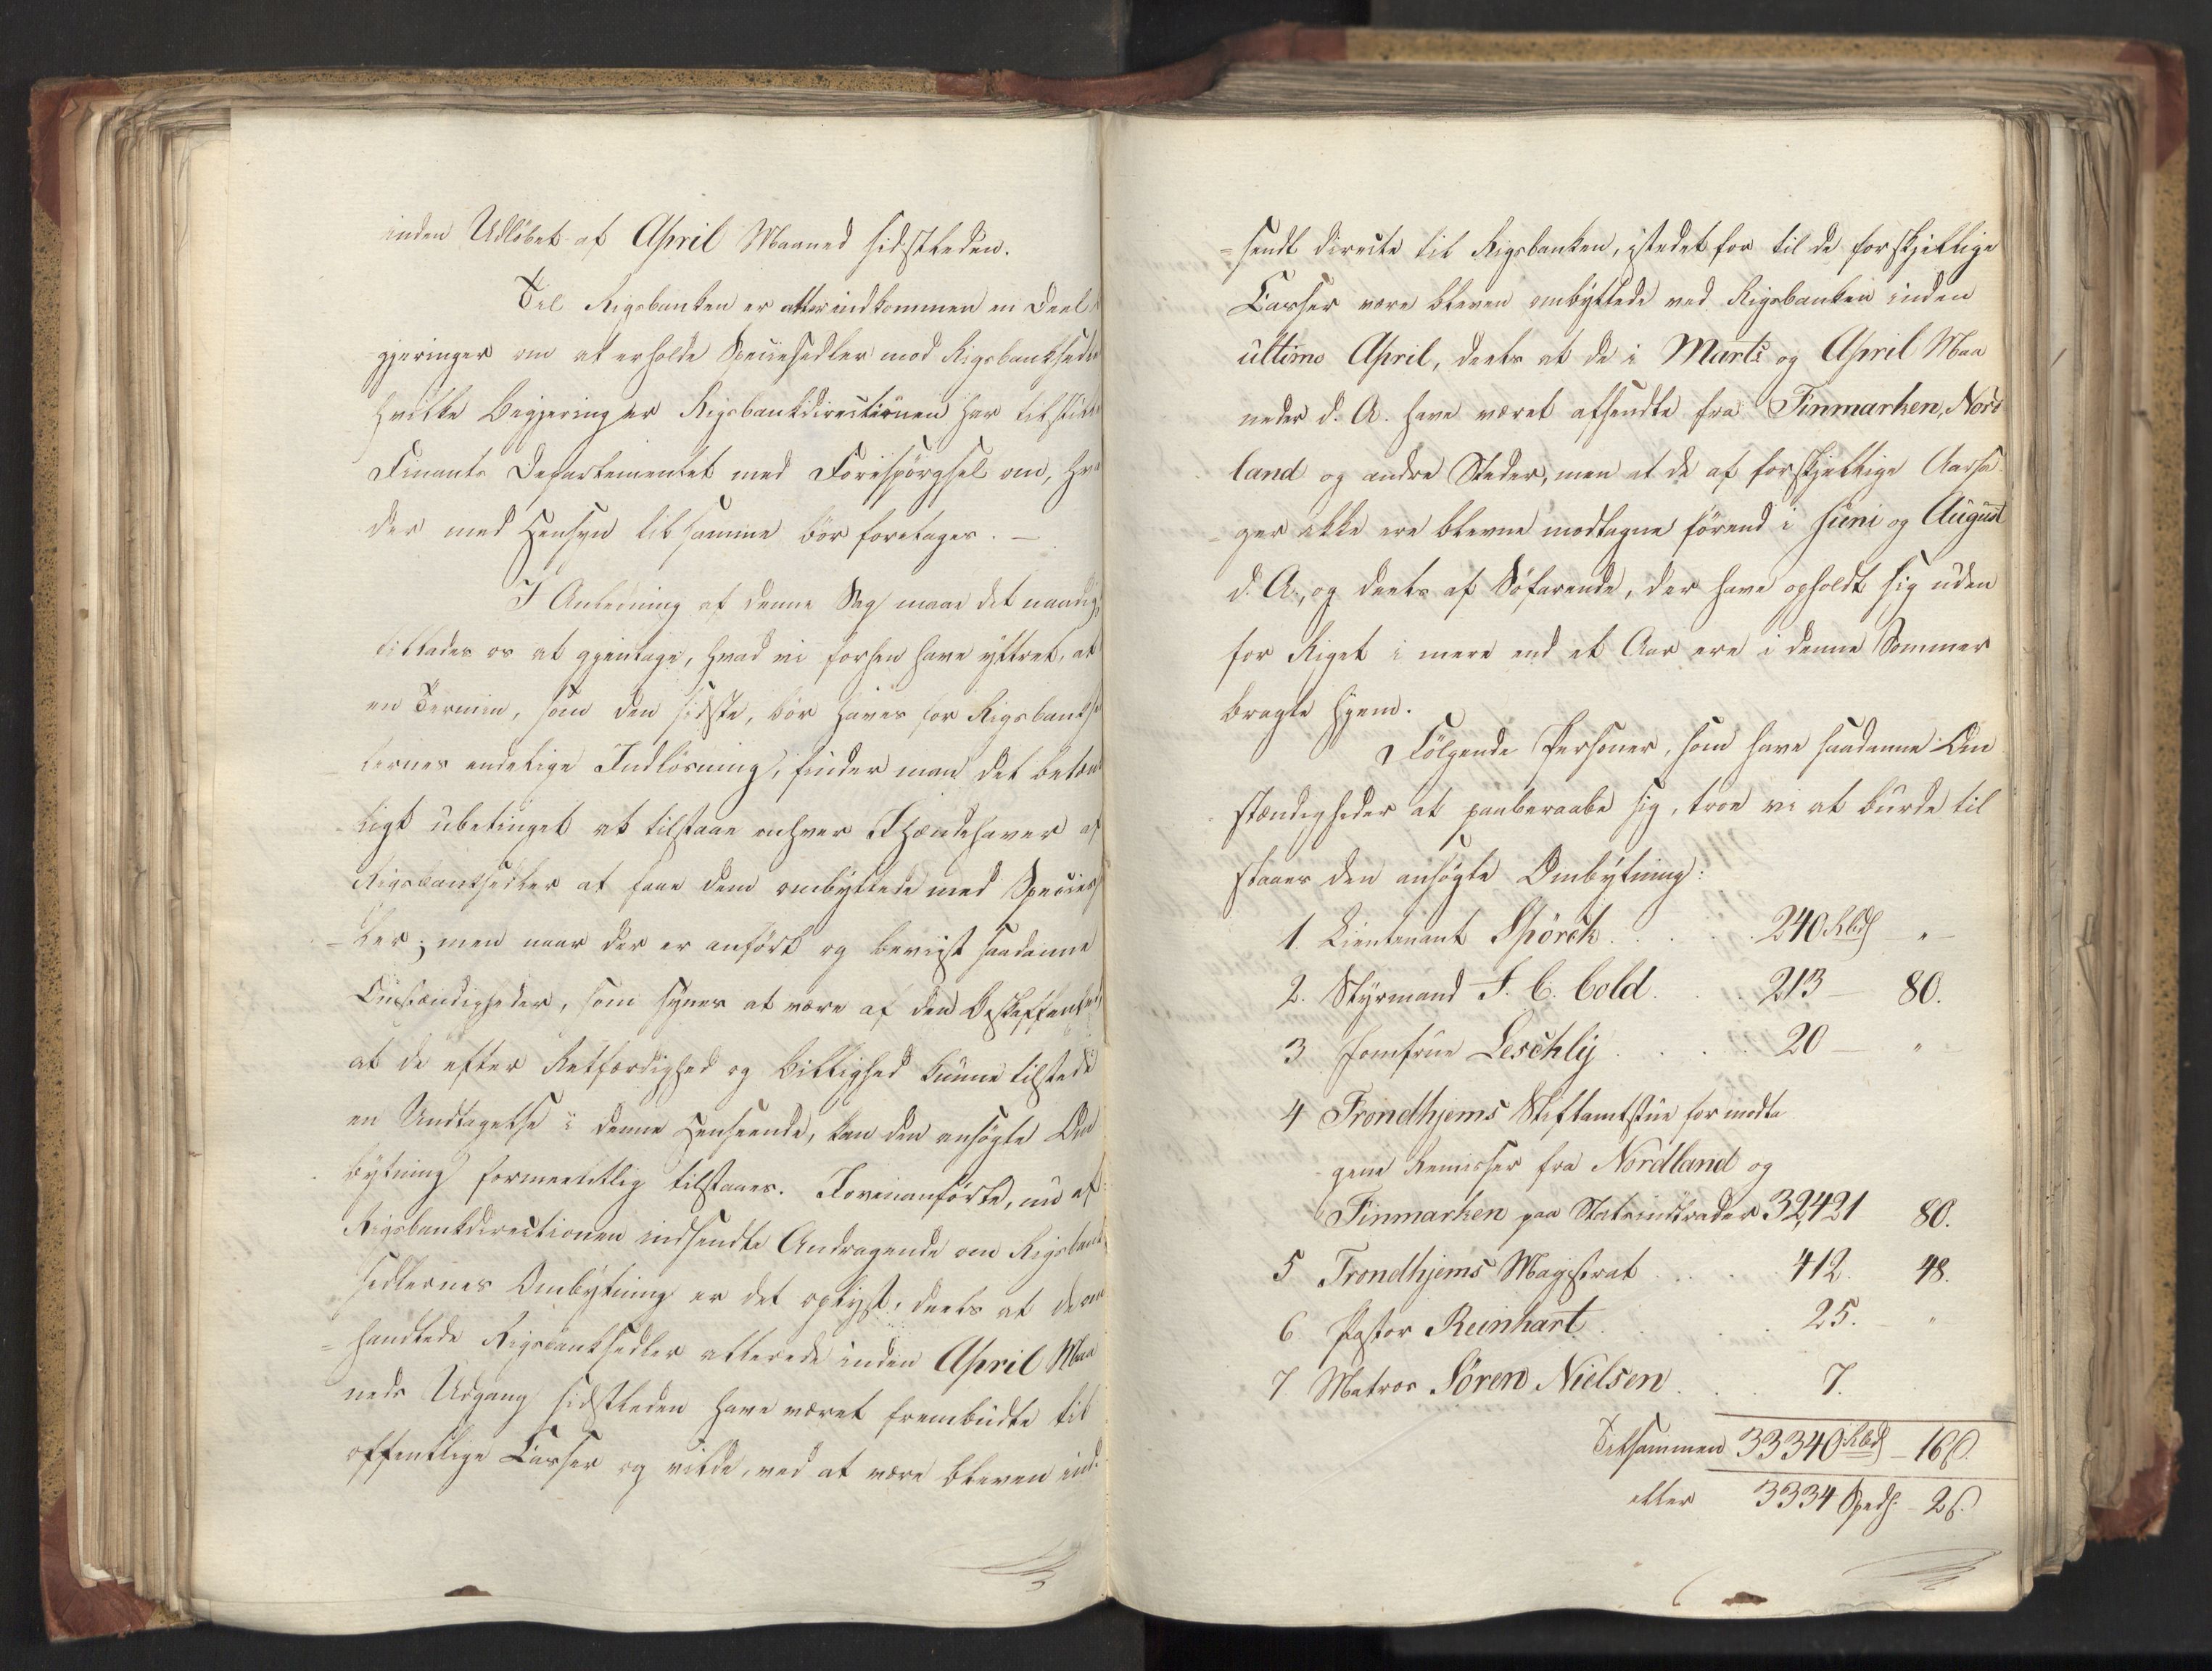 inden Udløbet af April Maaned sidstleden.
Til Rigsbanken er atter indkommen en Deel
gjeringer om at erholde Speciesedler mod Rigsbanksedle
hvilke Begjeringer Rigsbankdirectionen har tilstillet
Finants Departementet med Forespørgsel om, hva
der med Hensyn til samme bør foretages. —
I Anledning af denne Sag maae det naadigst
tillades os at gjentage, hvad vi forhen have yttret, at
en Termin, som den sidste, bør haves for Rigsbankse
lernes endelige Indløsning, finder man det betænk
ligt ubetinget at tilstaae enhver Ihændehaver af
Rigsbanksedler at faae dem ombyttede med Speciesed
ler; men naar der er anført og beviist saadanne
Omstændigheder, som synes at være af den Beskaffenhed
at de efter Retfærdighed og Billighed kunne tilstede
en Undtagelse i denne Henseende, kan den ansøgte Om
bytning formeentlig tilstaaes. I ovenanførte, nu af
Rigsbankdirectionen indsendte Andragende om Rigsbank
sedlernes Ombytning er det oplyst, deels at de om
handlede Rigsbanksedler allerede inden April Maa
neds Udgang sidstleden have været frembudte til
offentlige Casser og vilde, ved at være bleven ind-
sendt directe til Rigsbanken, istedet for til de forskjellige
Casser være bleven ombyttede ved Rigsbanken inden
ultimo April, deels at de i Marts og April Maa
neder d. A. have været afsendte fra Finmarken, Nord
land og andre Steder, men at de af forskjellige Aarsa-
ger ikke ere blevne modtagne førend i Juni og August
d. A., og deels af Søfarende, der have opholdt sig uden
for Riget i mere end et Aar ere i denne Sommer
bragte hjem.
Følgende Personer, som have saadanne Om
stændigheder at paaberaabe sig, troe vi at burde til
staaes den ansøgte Ombytning:
1. Lieutenant Spörck . . . . 240 Rbd „ —
2. Styrmand J. C. Cold . . . 213 — 80.
3 Jomfrue Leschly . . . . 20 — „
4 Trondhjems Stiftamtstue for modta
gene Remisser fra Nordland og
Finmarken paa Statsindtrader 32,421 80.
5 Trondhjems Magistrat . . . . 412. 48.
6 Pastor Reinhart . . . . 25. „
7 Matros Søren Nielsen . . . 7.
Tilsammen 33340 Rbd — 16 ß.
eller 3334 Spd. — 2 ß.